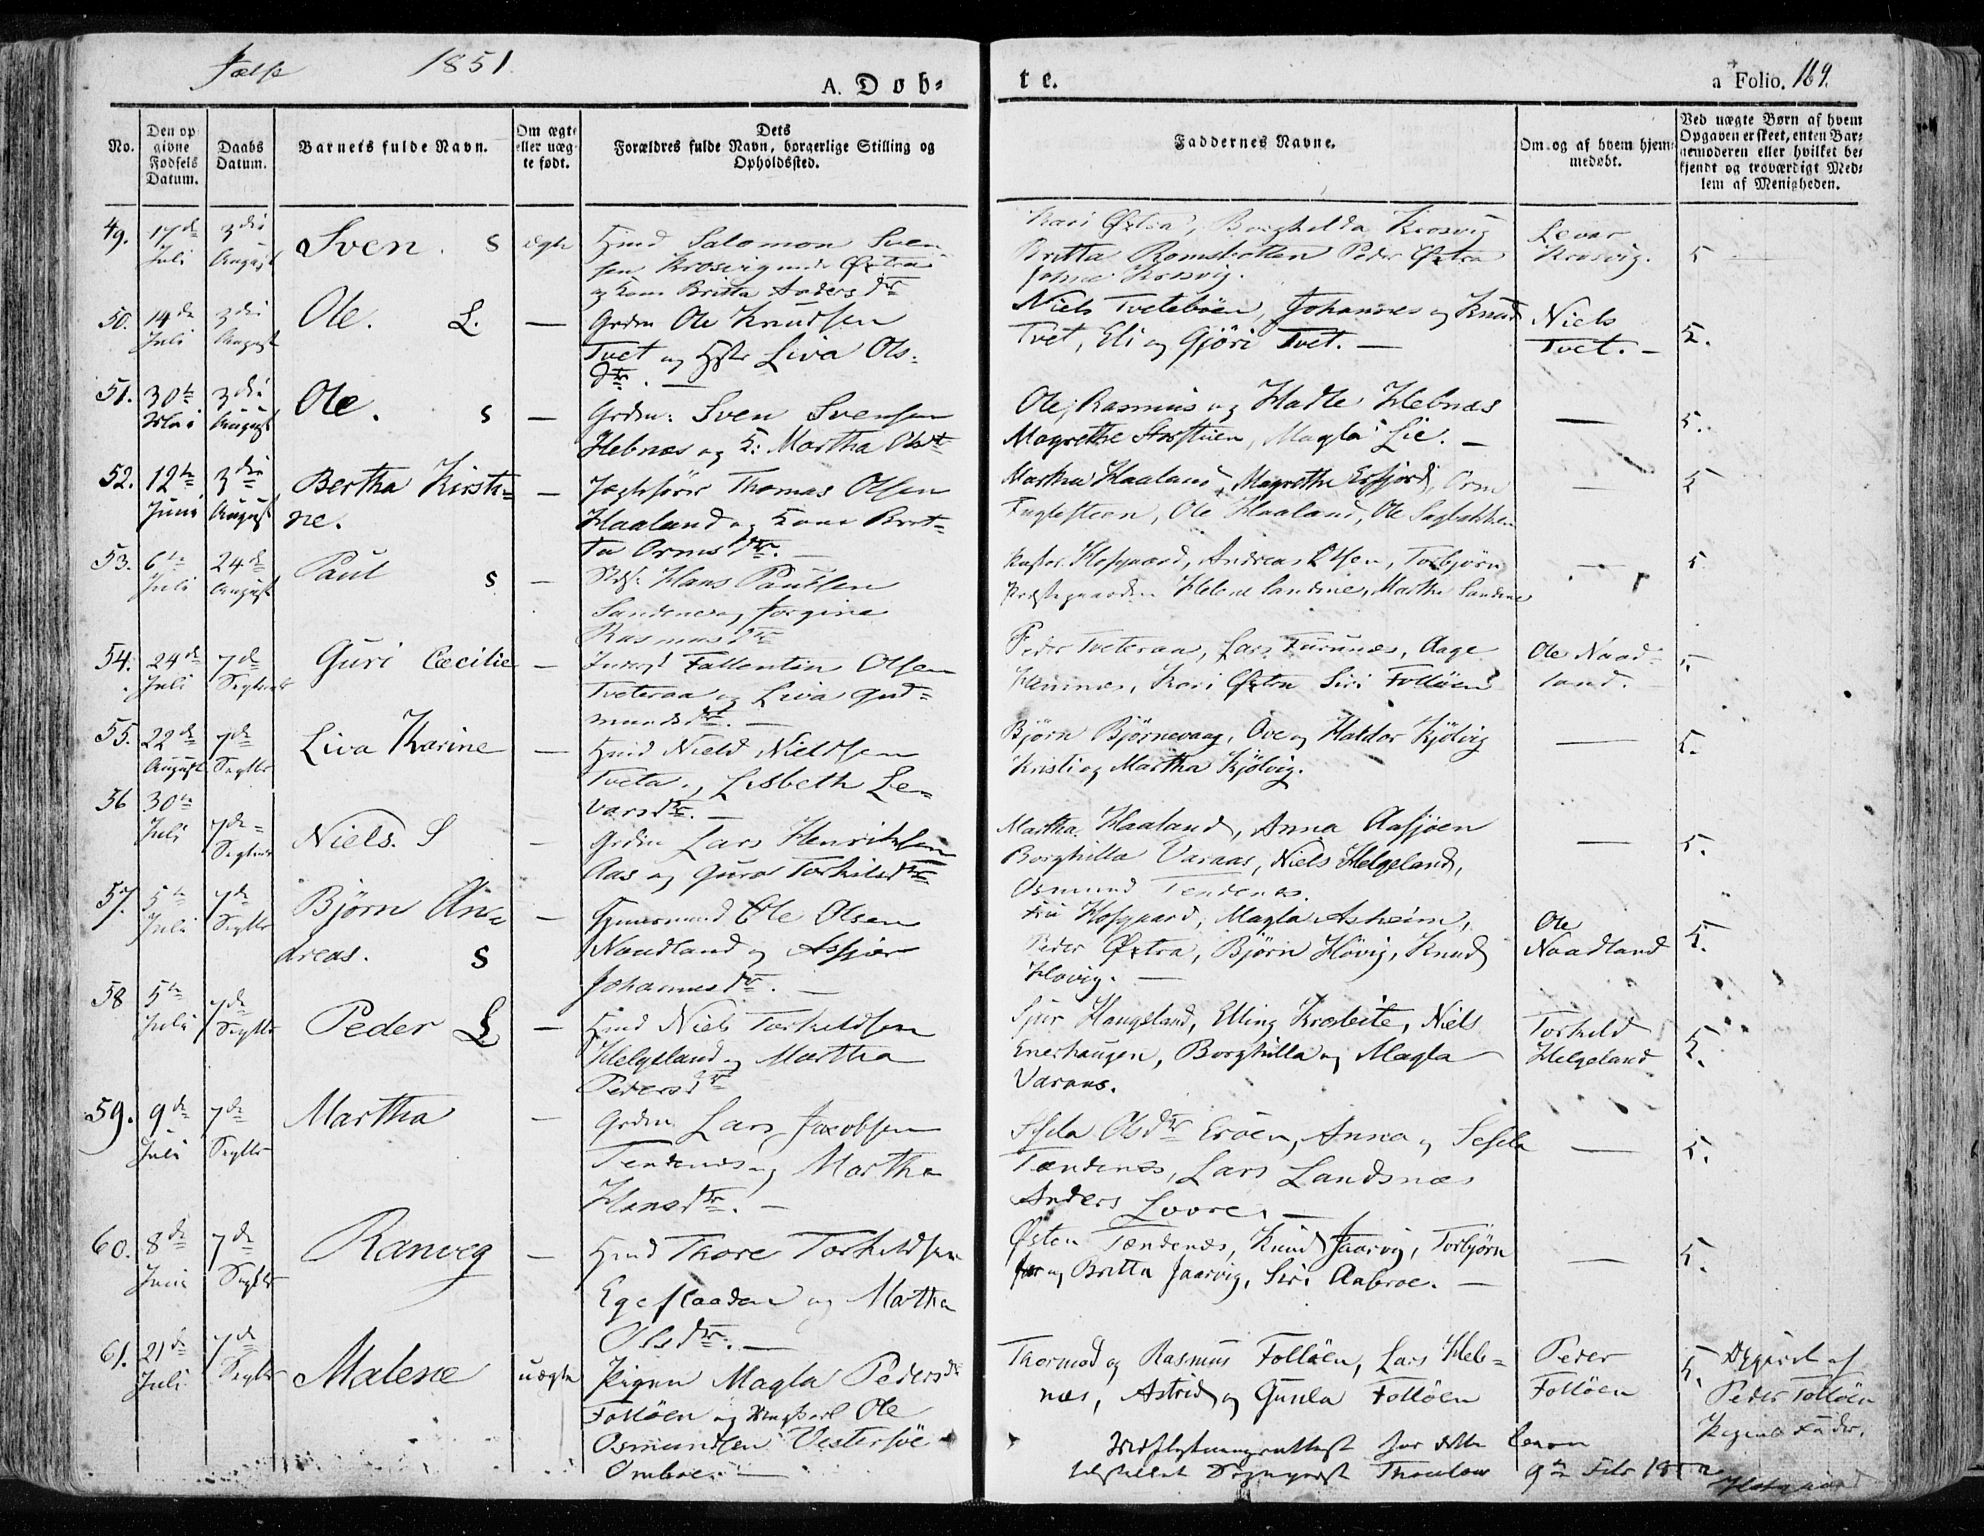 Jælse 1851.
A. Døb-
te.
a Folio. 169.
No.
Den op
givne
Fødsels
Datum.
Daabs
Datum.
Barnets fulde Navn.
Om ægte
eller uæg-
te født.
Dets
Forældres fulde Navn, borgerlige Stilling og
Opholdssted.
Faddernes Navne.
Om og af hvem hjem-
medøbt.
Ved uægte Børn af hvem
Opgaven er skeet, enten Bar-
nemoderen eller hvilket be-
kjendt og troværdigt Med-
lem af Menigheden.
49. 17de Juli 3die August Sven. S ægte
Hmd Salomon Sven
sen Krosvig under Østra
og Kone Britta Andersdtr
Kari Østra, Borghilda Krosvig
Britta Romsbotten Peder Østra
Krosvig.
Levar
Krosvig.
5
50. 14de Juli 3die August Ole. L. —
Grdm Ole Knudsen
Tvet og Hstr Liva Ols-
dtr. —
Niels Tvetebøen, Johannes og Knud
Tvet, Eli og Gjøri Tvet. —
Niels
Tvet. —
5.
51. 30te Mai 3die August Ole. S —
Grdm: Sven Svensen
Hebnæs og K: Martha Olsdtr
Ole, Rasmus og Hadle Hebnæs
Magrethe Storstuen, Magla Lie. —
—
5.
52. 12te Juni 3die August Bertha Kirsti-
ne. —
Jægtefører Thomas Olsen
Haaland og Kone Brit-
ta Ormsdtr. —
Martha Haaland, Magrethe Erfjord, Orm
Fuglesteen, Ole Haaland, Ole Sagbakken
—
5
53. 6te Juli 24de August Paul S —
Hans Paulsen
Sandene og Jorgine
Rasmusdtr
Pastor Hofgaard, Andreas Olsen, Torbjørn
Præstegaarden Helene Sandene, Martha Sandene
—
5
54. 24de Juli 7de Septembr Guri Cecilie —
Fallentin Olsen
Tveteraa og Liva Gud-
mundsdtr. —
Peder Tveteraa, Lars Furunæs, Aage
Hannæs, Kari Østra Siri Folløen
Ole Naad-
land.
5
55. 22de August 7de Septbr Liva Karine —
Hmd Nield Nieldsen
Tveta, Lisbeth Le-
varsdtr. —
Bjørn Bjørnevaag, Ove og Haldor Kjølvig
Kristi og Martha Kjølvig.
—
5.
56 30te Juli 7de Septembr Niels. S —
Grdm Lars Henriksen
Aas og Guro Torkildsdtr
Martha Haaland, Anna Aasjøen
Borghilla Varaas, Niels Helgeland,
Osmund Tendenæs.
—
5.
57. 5te Juli 7de Septbr Bjørn An-
dreas. S —
Huusmand Ole Olsen
Naadland og Assjer
Johannesdtr. —
Fru Hofgaard, Magla Asheim,
Peder Østra, Bjørn Høvig, Knud
Høvig. —
Ole
Naadland
5.
58 5te Juli 7de Septbr Peder L —
Hmd Niels Torkildsen
Helgeland og Martha
Pedersdtr
Sjur Haugeland, Elling Krosleite, Niels
Enerhaugen, Borghilla og Magla
Varaas.
Torkild
Helgeland
5.
59. 9de Juli 7de Septbr Martha —
Grdm. Lars Jacobsen
Tendenæs og Martha
Hansdtr. —
Sesela Olsdtr Erøen, Anna og Sesela
Tændenæs, Lars Landsnæs
Anders Lovre. —
—
5.
60. 8de Juni 7de Septbr Ranveg —
Hmd Thore Torkildsen
Egeflaaden og Martha
Olsdtr. —
Østen Tændenæs, Knud Jaarvig, Torbjørn
og Britta Jaarvig, Siri Aabroe. —
—
5.
61. 21de Juli 7de Septbr Malene uægte
Pigen Magla Pedersdtr
Folløen og Ungkarl Ole
Osmundsen Vestersøe
Omboe. —
Thormod og Rasmus Folløen, Lars Heb-
næs, Astrid og Gunla Folløen
Peder
Folløen
5.
Opgivet af
Peder Folløen
Pigens Fader.
Indflytningsattest for dette Barn
udstædt 9de Febr 185
Hofgaard